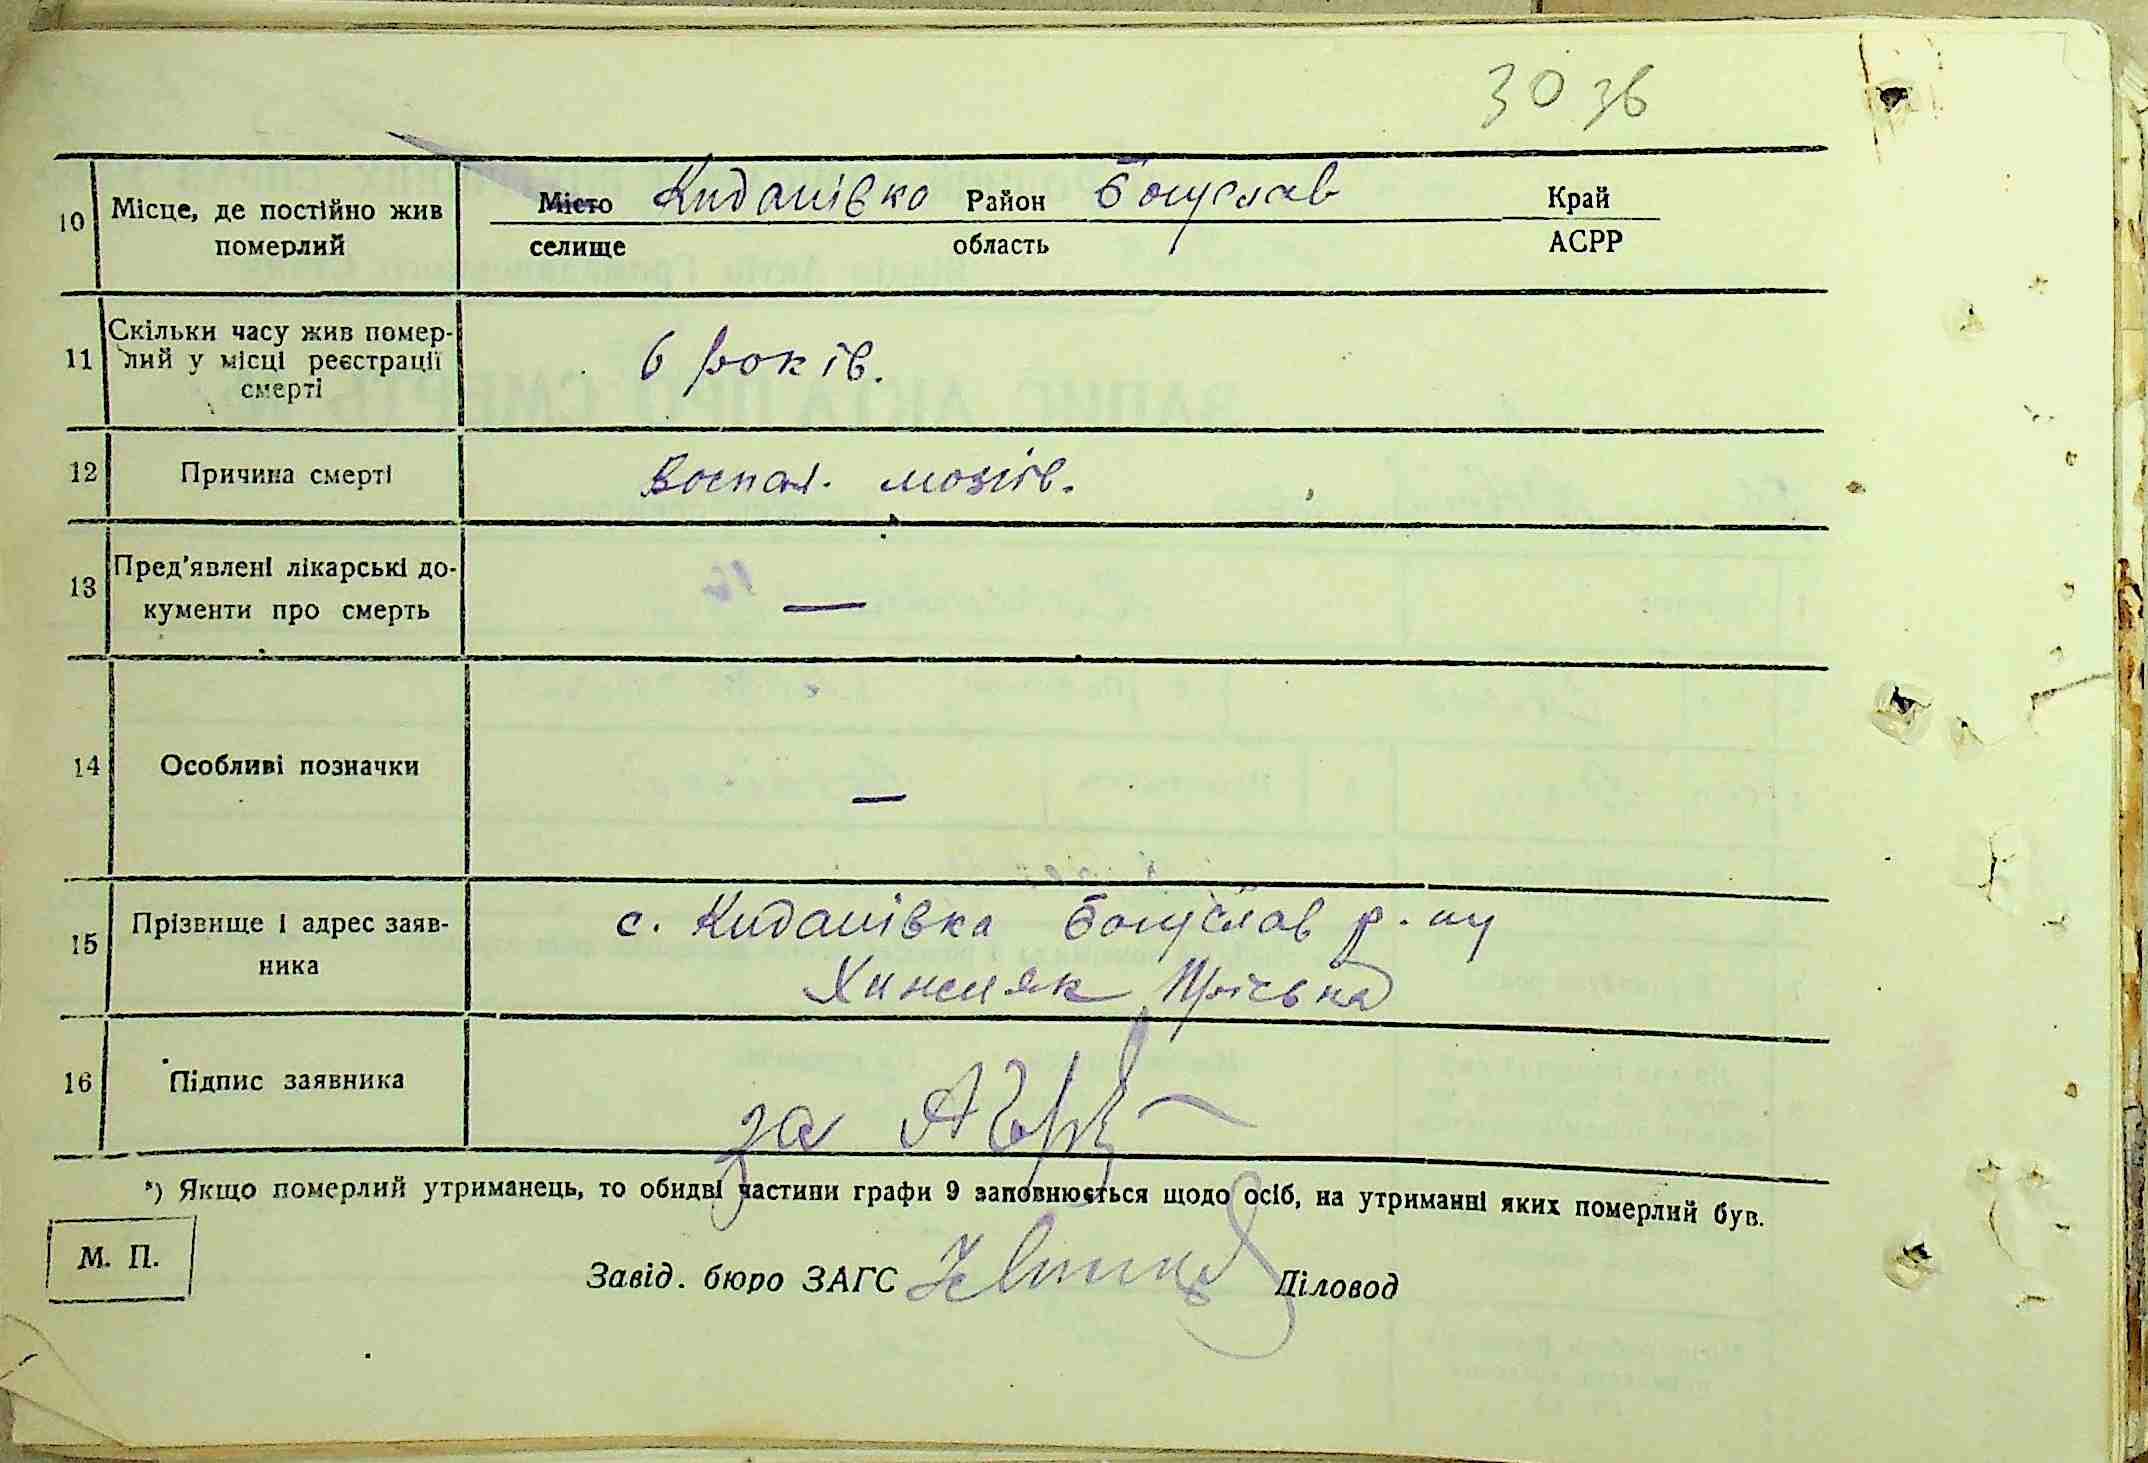 30 зв
10 Місце, де постійно жив померлий
Місто Киданівка Район Богуслав Край
селище область АСРР
11 Скільки часу жив помер-
лий у місці реєстрації
смерті
6 років.
12 Причина смерті
Воспал. мозгів.
13 Пред'явлені лікарські до-
кументи про смерть
—
14 Особливі позначки
—
15 Прізвище і адрес заяв-
ника
с. Киданівка Богуслав р-ну
Хижняк
16 Підпис заявника
за
*) Якщо померлий утриманець, то обидві частини графи 9 заповнюється щодо осіб, на утриманні яких померлий був.
М. П.
Завід. бюро ЗАГС Діловод